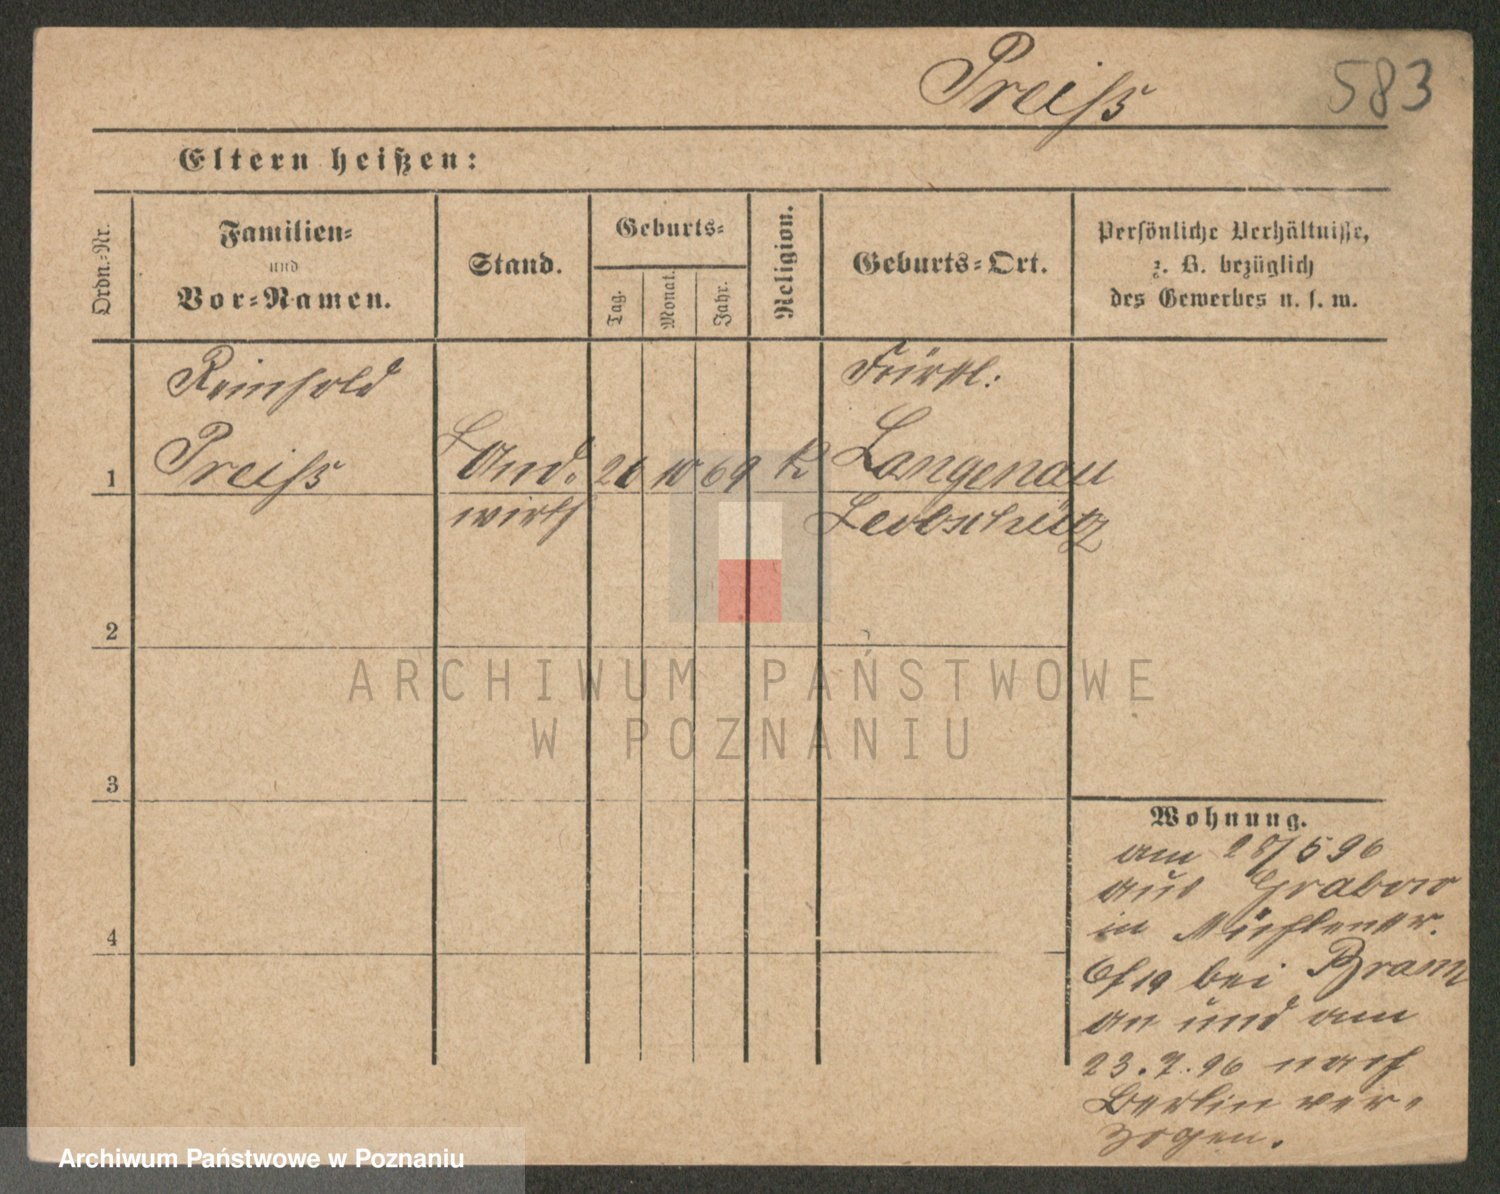 Preiss 583
Eltern heißen:
Ordn.-Nr.
Familien-
und
Vor-Namen.
Stand.
Geburts-
Tag.
Monat.
Jahr.
Religion.
Geburts-Ort.
Persönliche Verhältnisse,
z. B. bezüglich
des Gewerbes u. s. w.
Reinhold
Preiss
1
Land-
wirth
26 10 69 k
Fürstl:
Langenau
Leobschütz
2
3
4
Wohnung.
am 28/5 96
aus Grabow
in Mühlenstr.
bei Bram
an und am
23.7.96 nach
Berlin ver-
zogen.
ARCHIWUM PAŃSTWOWE
W POZNANIU
Archiwum Państwowe w Poznaniu